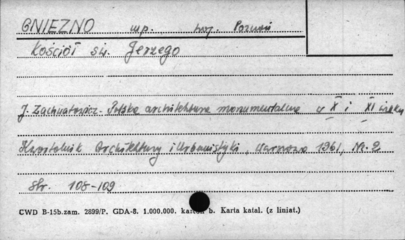 GNIEZNO mp. woj. Poznań
Kościół św. Jerzego
J. Zachwatowicz - Polska architektura monumentalna w X i XI wieku
Kwartalnik Architektury i Urbanistyki, Warszawa 1961, Nr. 2
Str. 108-109
CWD B-15b.zam. 2899/P. GDA-8. 1.000.000. b. Karta katal. (z liniat.)